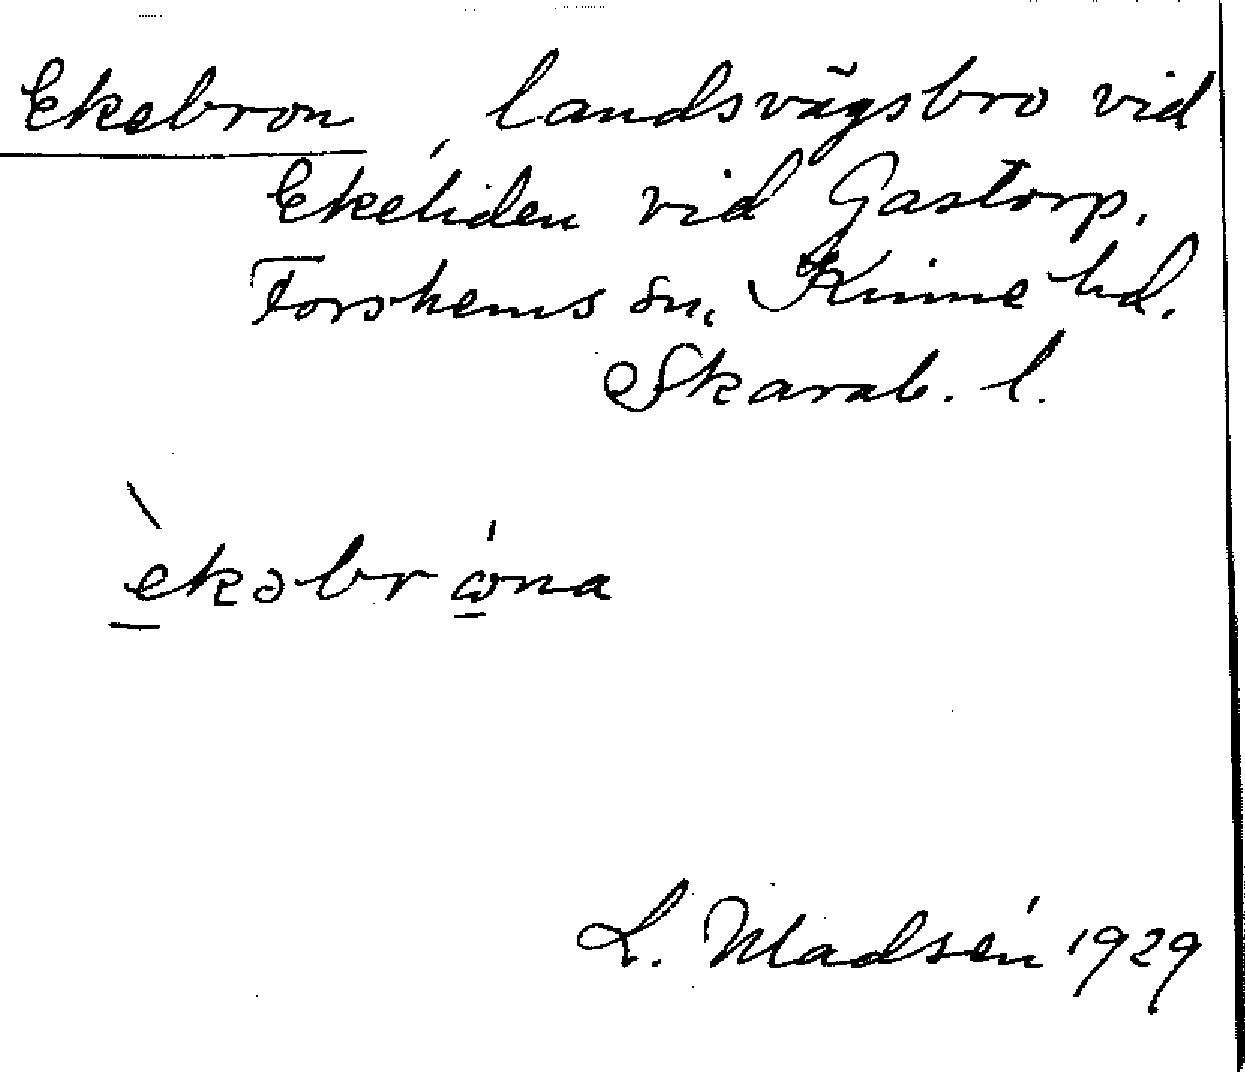 Ekebron, landsvägsbro vid
Ekeliden vid Gastorp,
Forshems sn, Kinne hd.
Skarab. l.
èkəbrώna
L. Madsén 1929